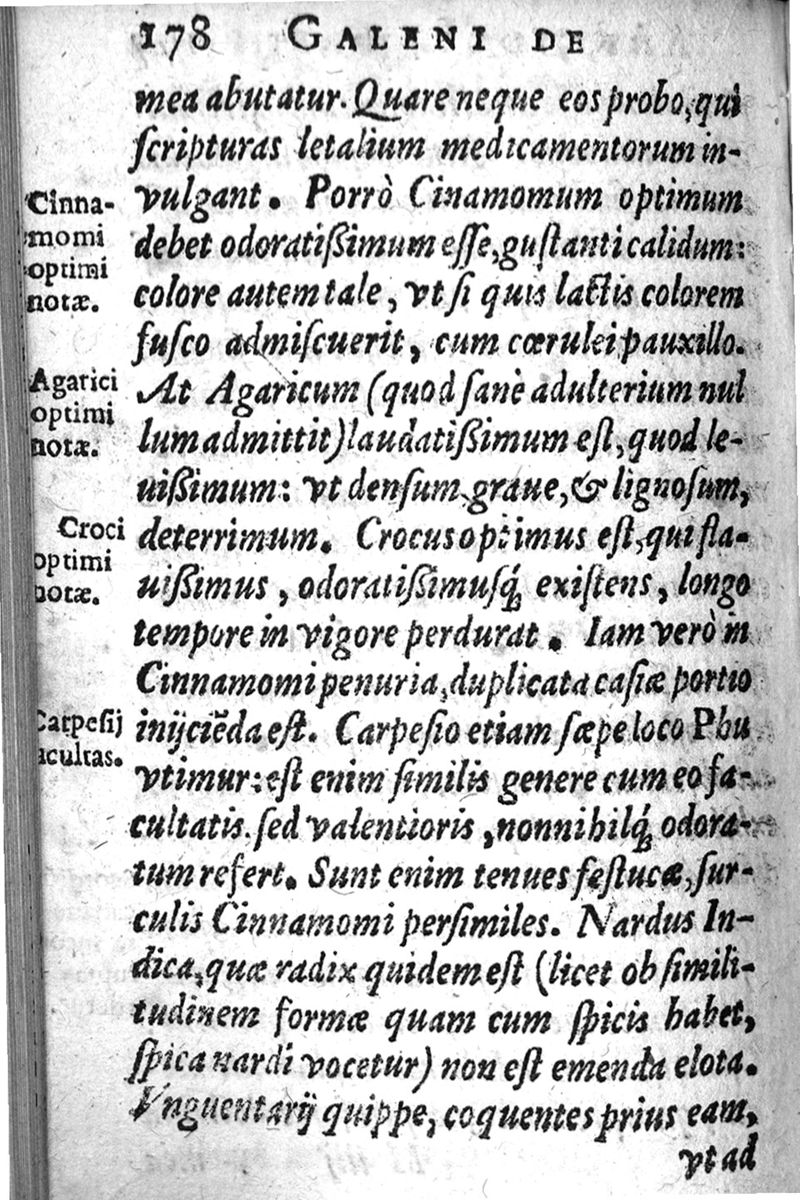 178 GALENI DE
mea abutatur. Quare neque eos probo, qui
ſcripturas letalium medicamentorum in-
vulgant. Porrò Cinamomum optimum
debet odoratißimum eſſe, guſtanti calidum:
colore autem tale, vt ſi quis lactis colorem
fuſco admiſcuerit, cum cœrulei pauxillo.
At Agaricum (quod ſanè adulterium nul
lum admittit) laudatißimum eſt, quod le-
uißimum: vt denſum, graue, & lignoſum,
deterrimum. Crocus optimus eſt, qui fla-
uißimus, odoratißimuſq́; exiſtens, longo
tempore in vigore perdurat. Iam verò in
Cinnamomi penuria, duplicata caſiæ portio
inijciẽda eſt. Carpeſio etiam ſæpe loco Phu
vtimur: eſt enim ſimilis genere cum eo fa-
cultatis. ſed valentioris, nonnihilq́; odora-
tum refert. Sunt enim tenues feſtucæ, ſur-
culis Cinnamomi perſimiles. Nardus In-
dica, quæ radix quidem eſt (licet ob ſimili-
tudinem formæ quam cum ſpicis habet,
ſpica nardi vocetur) non eſt emenda elota.
Vnguentarij quippe, coquentes prius eam,
vt ad
Cinna-
momi
optimi
notæ.
Agarici
optimi
notæ.
Croci
optimi
notæ.
Carpeſij
acultas.